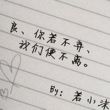 良、你若不弃,
我们便不离。
By: 若小沫